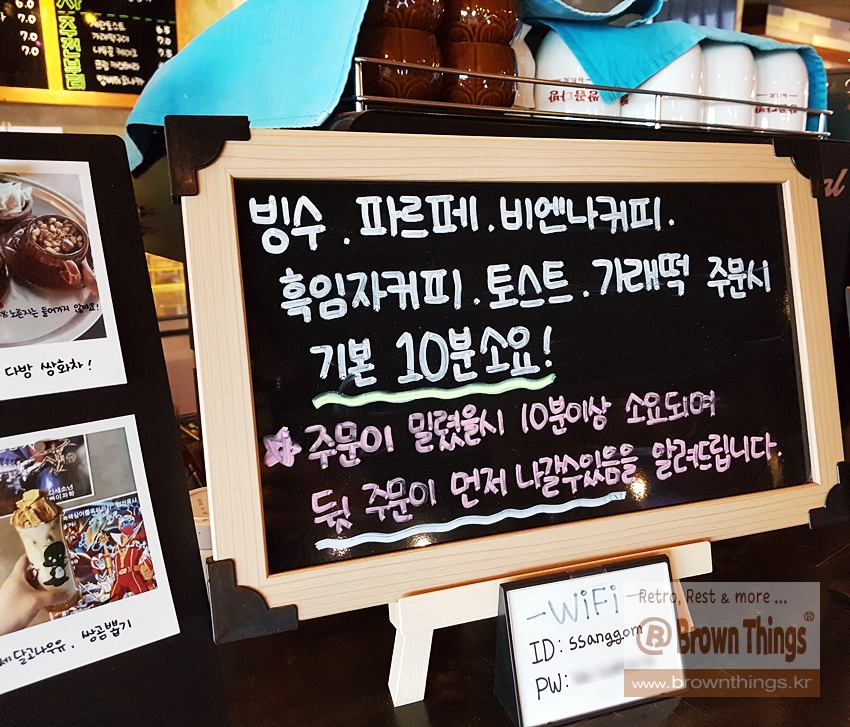 7.0
7.0
6.5
7.0
빙수 . 파르페 . 비엔나커피 .
흑임자커피 . 토스트 . 가래떡 주문시
기본 10분소요!
☆ 주문이 밀렸을시 10분이상 소요되며
뒷 주문이 먼저 나갈수있음을 알려드립니다.
노른자는 들어가지 않아요!
다방 쌍화차!
달고나우유 . 쌍곰뽑기
- WiFi -
ID: ssanggom
PW:
Retro, Rest & more ...
® Brown Things®
www.brownthings.kr